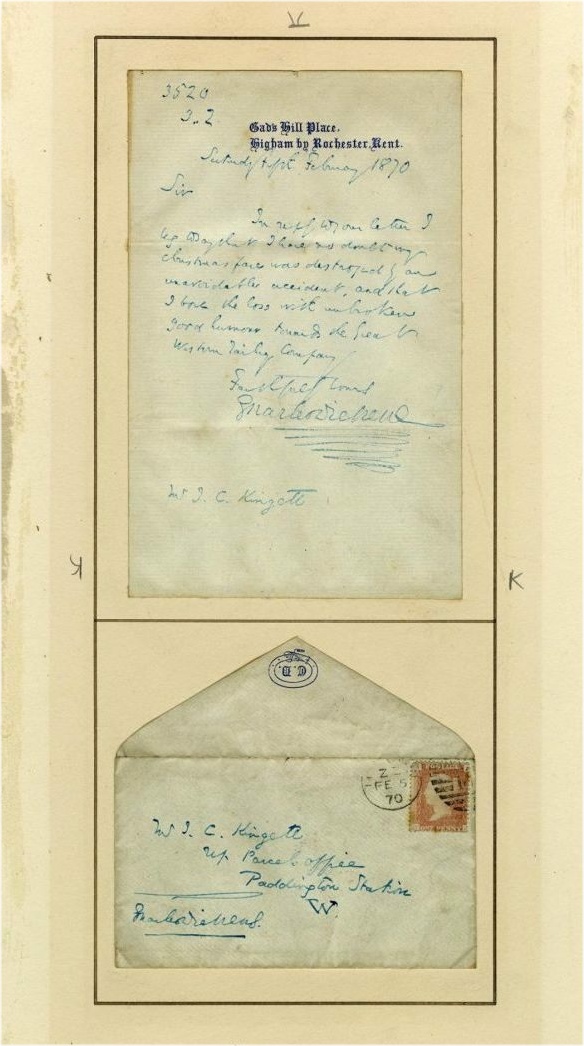 3520
3.2
Gad's Hill Place,
Higham by Rochester, Kent.
Saturday Fifth February 1870
Sir
In reply to your letter I
beg to say that I have no doubt my
Christmas fare was destroyed by an
unavoidable accident, and that
I bore the loss with unbroken
good humour towards the Great
Western Railway Company
Faithfully Yours
Charles Dickens
Mr J. C. Kingett
K
K
C.D.
FE 5
70
Mr J. C. Kingett
Up Parcels office
Paddington Station
W.
Charles Dickens.